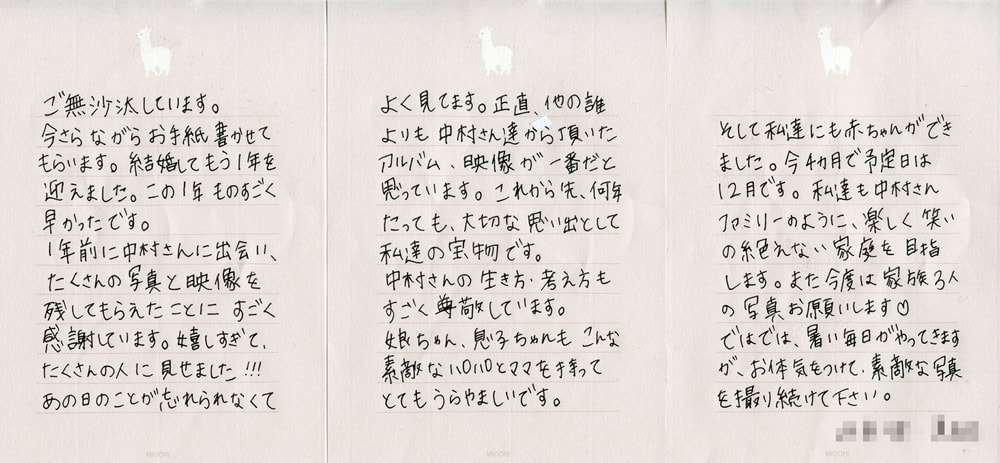 ご無沙汰しています。
今さらながらお手紙書かせて
もらいます。結婚してもう1年を
迎えました。この1年ものすごく
早かったです。
1年前に中村さんに出会い、
たくさんの写真と映像を
残してもらえたことにすごく
感謝しています。嬉しすぎて、
たくさんの人に見せました!!!
あの日のことが忘れられなくて
よく見てます。正直、他の誰
よりも中村さん達から頂いた
アルバム、映像が一番だと
思っています。これから先、何年
たっても、大切な思い出として
私達の宝物です。
中村さんの生き方・考え方も
すごく尊敬しています。
娘ちゃん、息子ちゃんもこんな
素敵なパパとママを持って
とてもうらやましいです。
そして私達にも赤ちゃんができ
ました。今4カ月で予定日は
12月です。私達も中村さん
ファミリーのように、楽しく笑い
の絶えない家庭を目指
します。また今度は家族3人
の写真お願いします♡
ではでは、暑い毎日がやってきます
が、お体気をつけて、素敵な写真
を撮り続けて下さい。
MIDORI
MIDORI
MIDORI